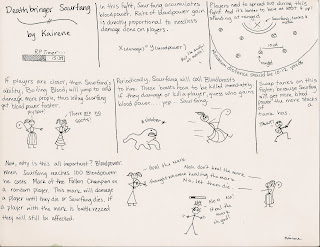 Deathbringer Saurfang
by Kairene
RP Timer
In this fight, Saurfang accumulates
bloodpower. Rate of bloodpower gain
is directly proportional to needless
damage done on players.
Players need to spread out during this
fight. And it's better to have
standing at range!
Saurfang, tanks +
melee
should be 10-12 yards
If players are closer, then Saurfang's
ability, Boiling Blood, will jump to add
damage more people, thus letting Saurfang
get bloodpower faster.
Periodically, Saurfang will call Bloodbeasts
to him. These beasts have to be killed immediately
if they damage or kill a player, guess who gains
blood power... yep... Saurfang.
Swap tanks on this
fight because Saurfang
will get more blood
power the more stacks
a tank has.
Now, why is this all important? Bloodpower
mean Saurfang reaches 100 Bloodpower
he casts Mark of the Fallen Champion on
a random player. This mark will damage
a player until they die or Saurfang dies. If
a player with the mark is battle rezzed
they will still be affected.
Heal the mark
Nah don't heal the mark
No, let them die.
Kairene